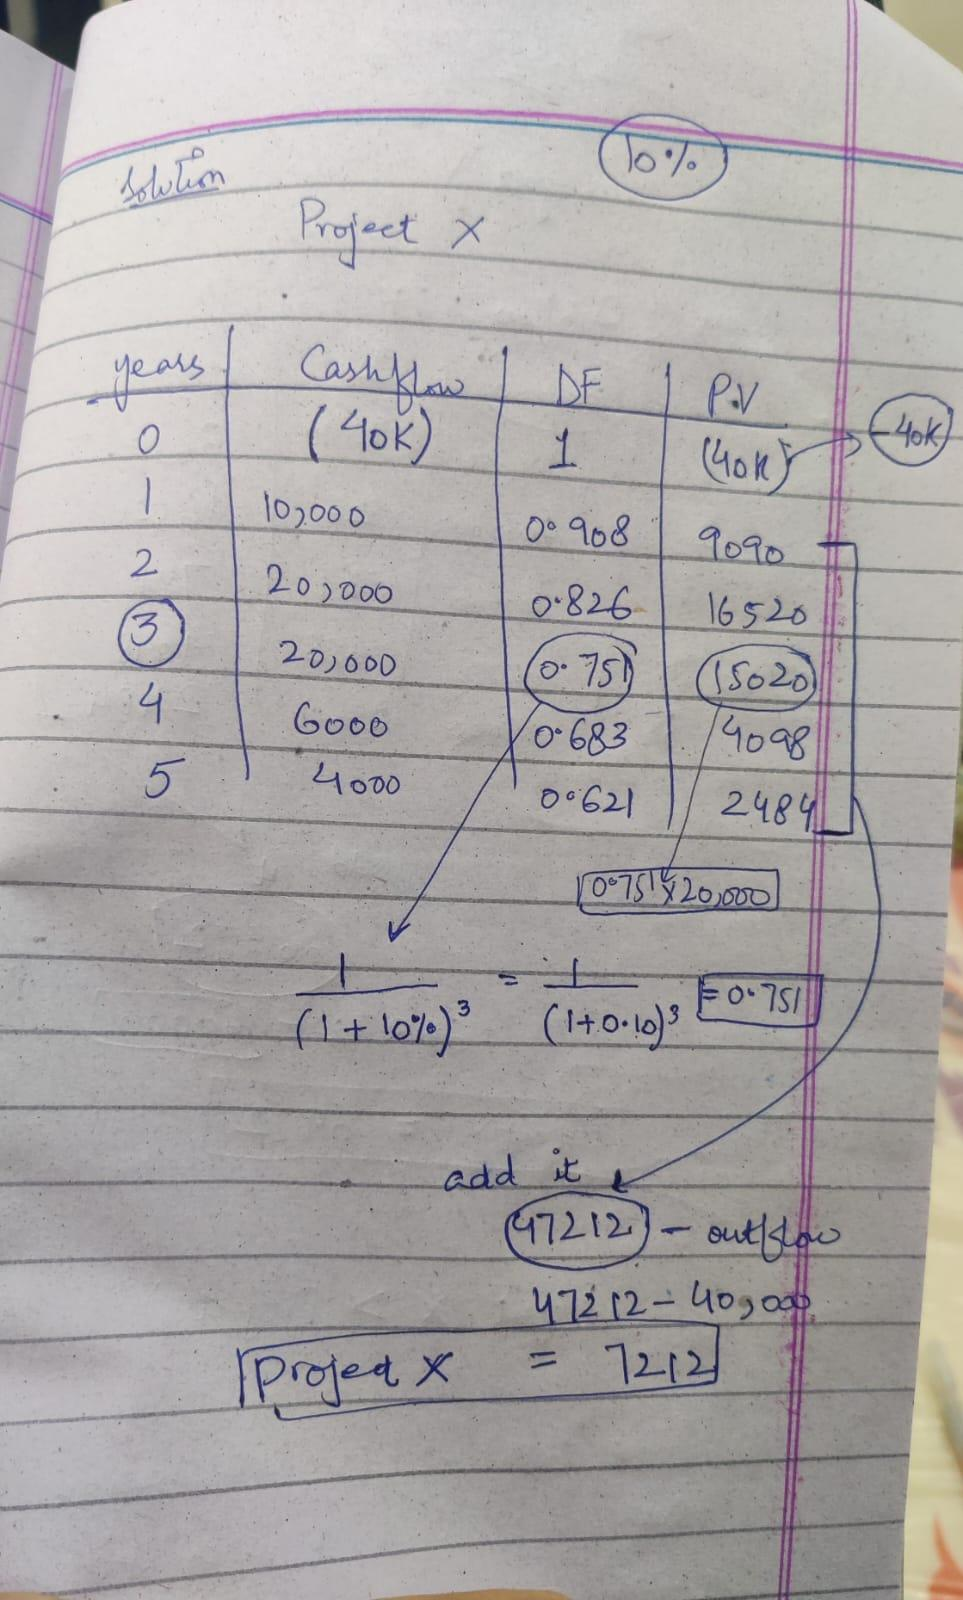 10%
Solution
Project X
years Cashflow DF P.V
0 (40K) 1 (40K) -40K
1 10,000 0.908 9090
2 20,000 0.826 16520
3 20,000 0.751 15020
4 6000 0.683 4098
5 4000 0.621 2484
0.751 x 20,000
1/(1+10%)³ = 1/(1+0.10)³ = 0.751
add it
47212 - outflow
47212 - 40,000
Project X = 7212